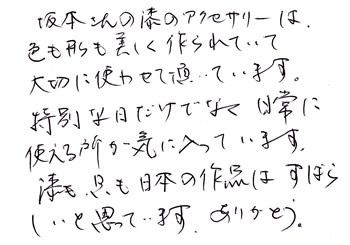 坂本さんの漆のアクセサリーは、
色も形も美しく作られていて
大切に使わせて頂いています。
特別な日だけでなく 日常に
使える所が気に入っています。
漆も 貝も日本の作品は すばら
しいと思っています。ありがとう。